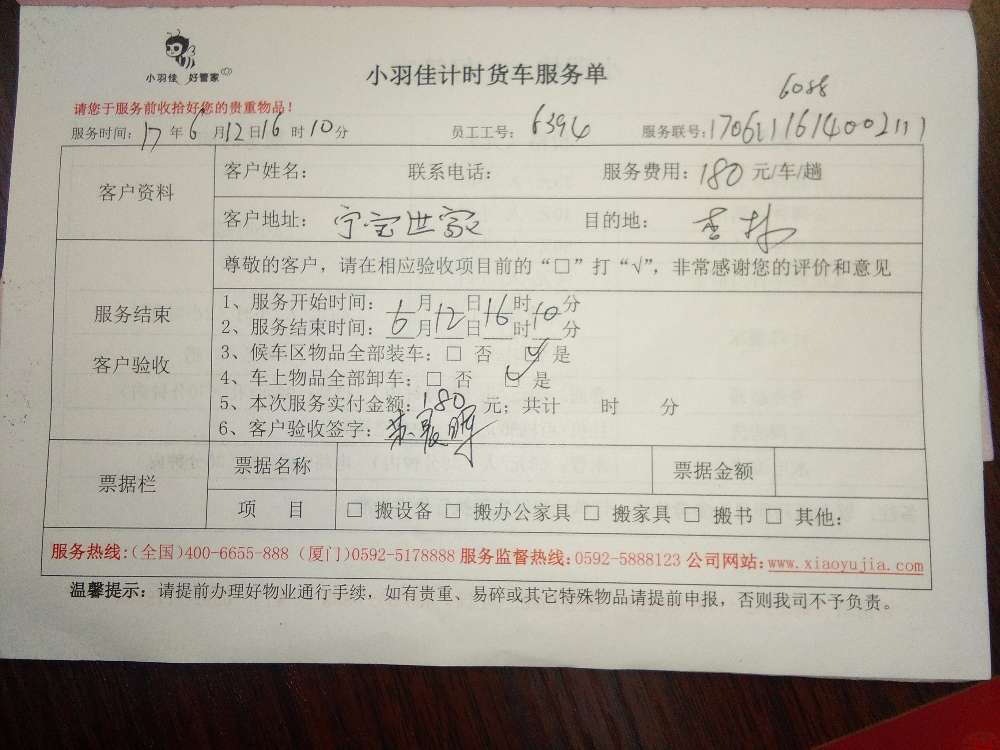 小羽佳 好管家
小羽佳计时货车服务单
6088
请您于服务前收拾好您的贵重物品！
服务时间：17年6月12日16时10分 员工工号：6394 服务联号：
客户资料
客户姓名： 联系电话： 服务费用：180元/车/趟
客户地址：宁宝世家 目的地：杏林
尊敬的客户，请在相应验收项目前的“□”打“√”，非常感谢您的评价和意见
服务结束
客户验收
1、服务开始时间：6月12日16时10分
2、服务结束时间：__月__日__时__分
3、候车区物品全部装车：□ 否 ☑ 是
4、车上物品全部卸车：□ 否 ☑ 是
5、本次服务实付金额：180元；共计 时 分
6、客户验收签字：
票据栏
票据名称 票据金额
项 目 □ 搬设备 □ 搬办公家具 □ 搬家具 □ 搬书 □ 其他：
服务热线：(全国)400-6655-888 (厦门)0592-5178888 服务监督热线：0592-5888123 公司网站：www.xiaoyujia.com
温馨提示：请提前办理好物业通行手续，如有贵重、易碎或其它特殊物品请提前申报，否则我司不予负责。